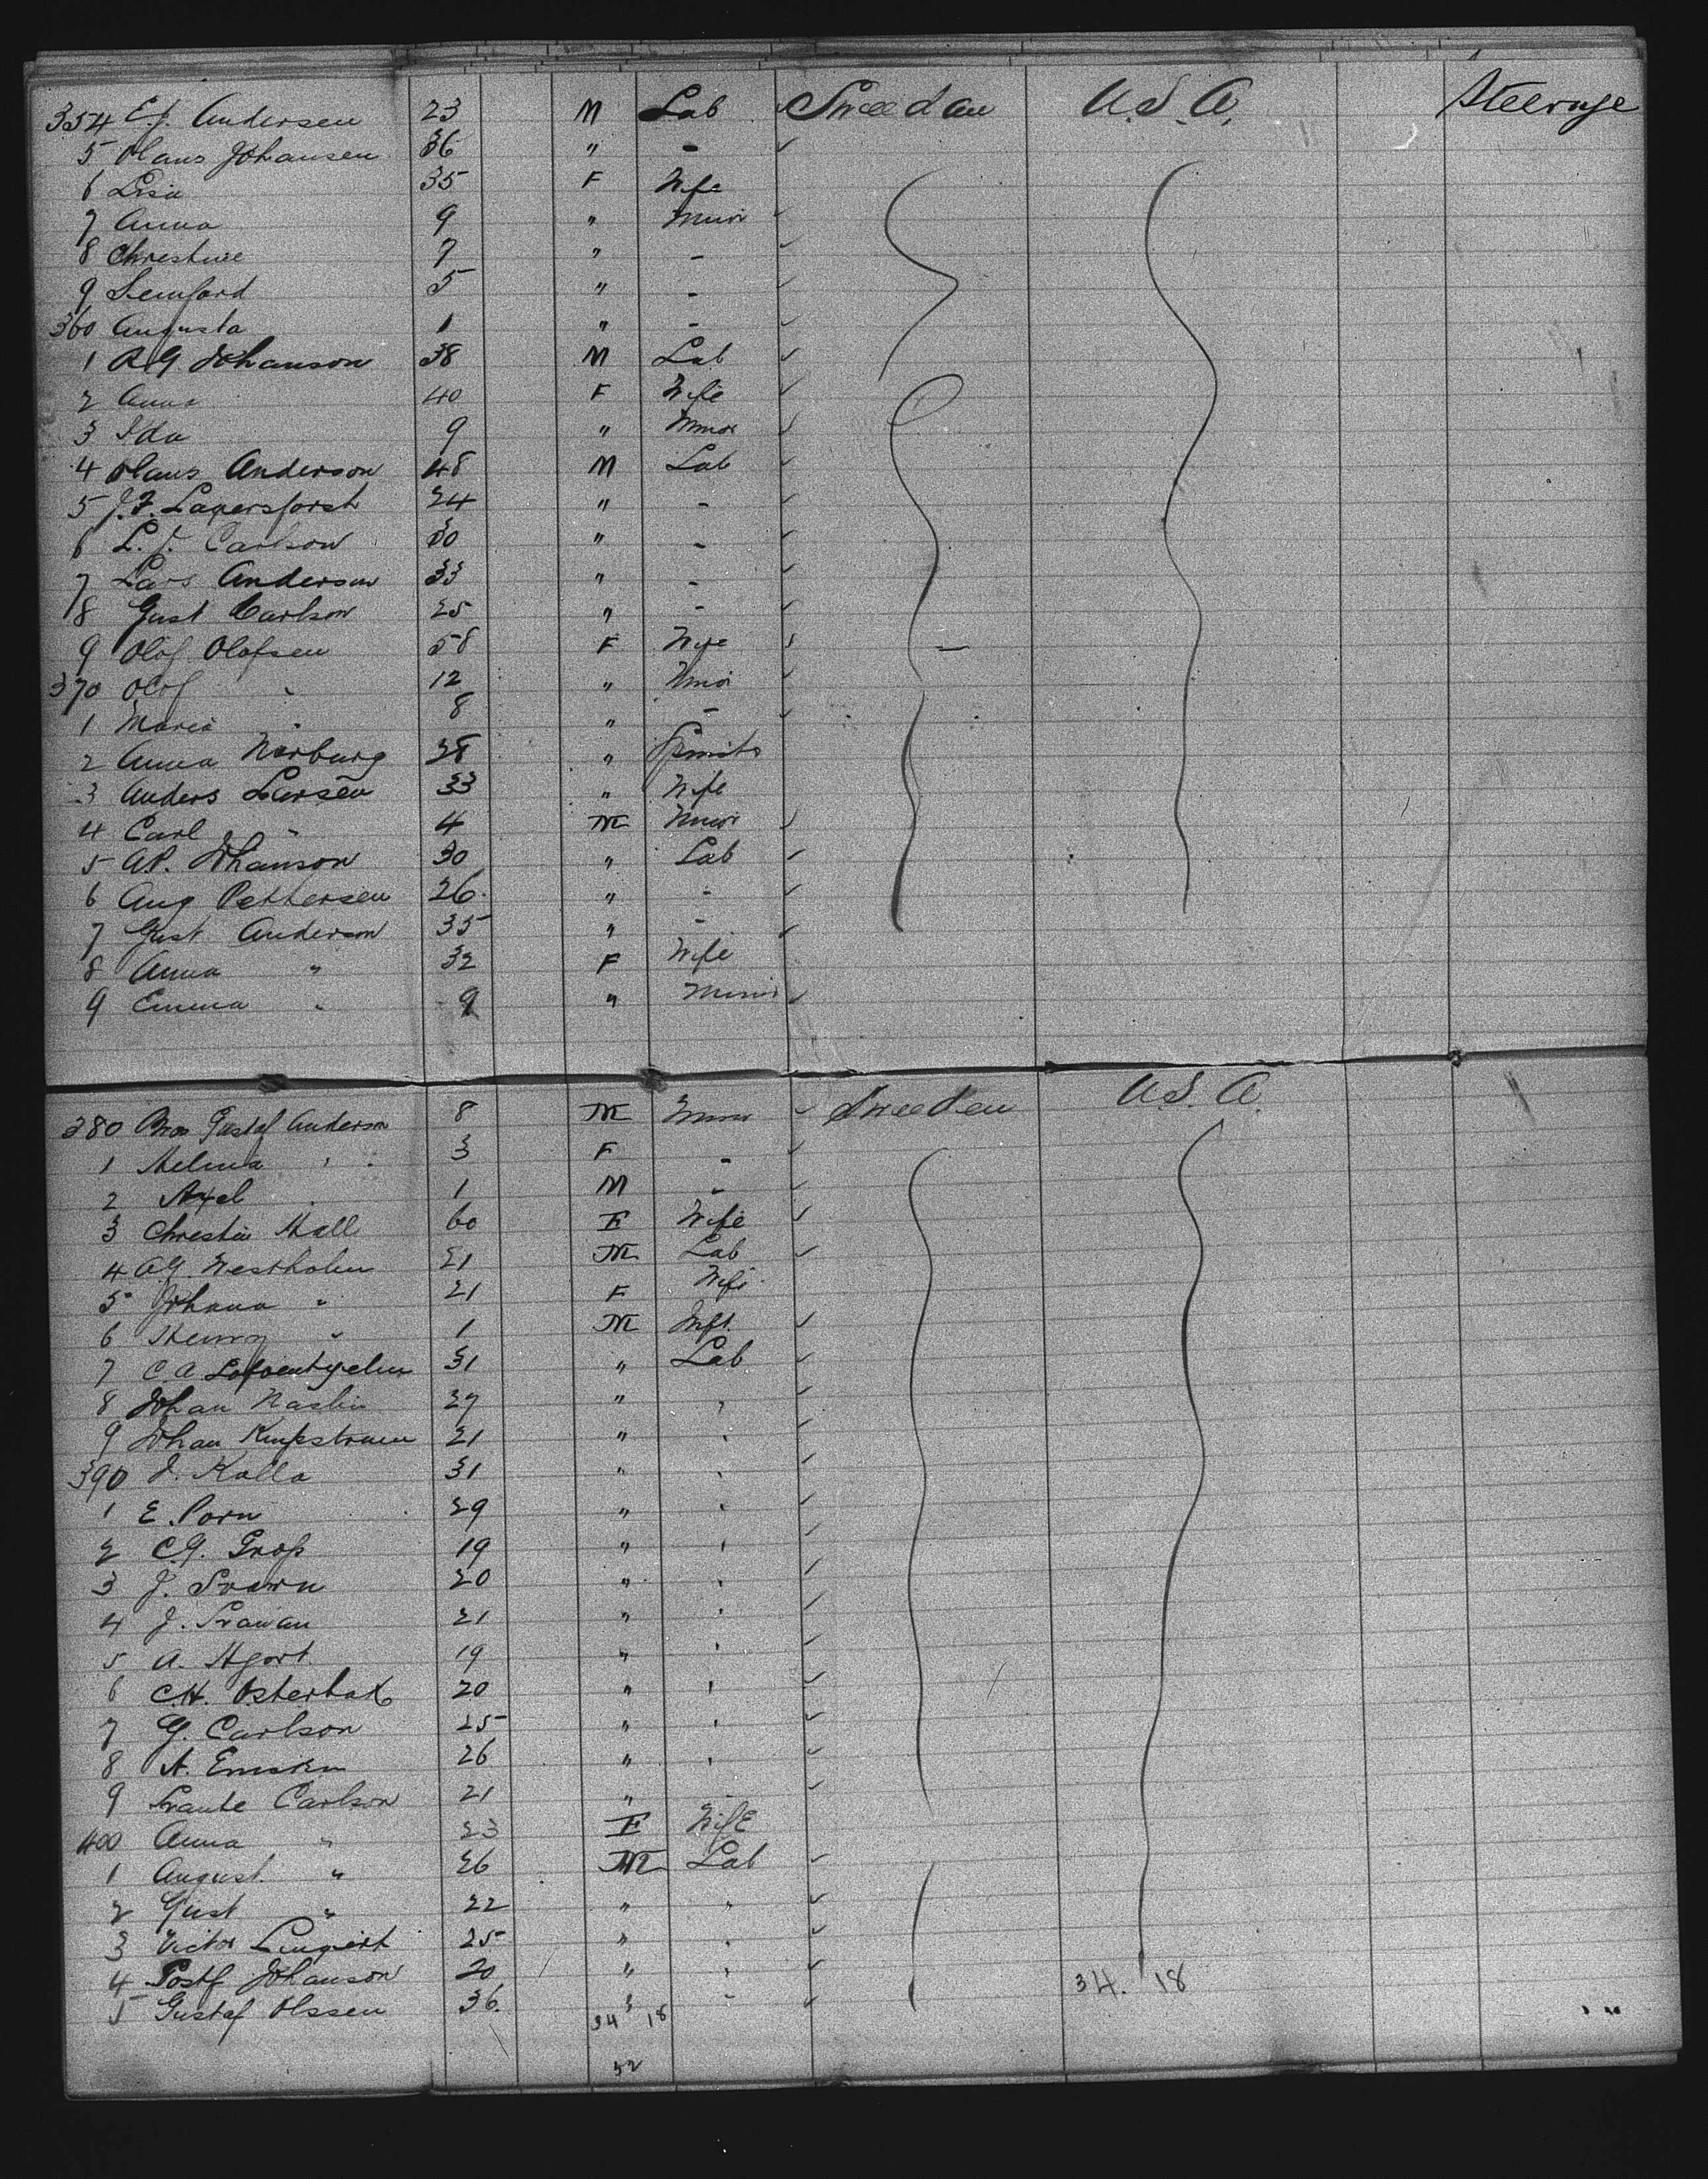 354 E J. Andersen 23 M Lab Sweedan U.S.A. Steerage
5 Olaus Johansen 36 " -
6 Lisa 35 F Wife
7 Anna 9 " Minor
8 Christine 7 " -
9 5 " -
360 Augusta 1 " -
1 A G Johanson 38 M Lab
2 Anna 40 F Wife
3 Ida 9 " Minor
4 Olaus Anderson 48 M Lab
5 J.F. 24 " -
6 L. J. Carlson 30 " -
7 Lars Anderson 33 " -
8 Gust Carlson 25 " -
9 Olof Olofsen 58 F Wife
370 Olof " 12 " Minor
1 Maria " 8 " -
2 Anna Norburg 28 " Spinster
3 Anders Larsen 33 " Wife
4 Carl " 4 M Minor
5 A.P. Johanson 30 " Lab
6 Aug Pettersen 26 " -
7 Gust Anderson 35 " -
8 Anna " 32 F Wife
9 Emma " 9 " Minor
380 Gustaf Anderson 8 M Minor Sweeden U.S.A.
1 Helma " 3 F -
2 Axel " 1 M -
3 Christin Hall 60 F Wife
4 A.G. Westholm 21 M Lab
5 Johana " 21 F Wife
6 Henry " 1 M Inft.
7 C. A. 31 " Lab
8 Johan Naslin 27 " "
9 Johan 21 " "
390 J. Kalla 31 " "
1 E. Porn 29 " "
2 C.G. 19 " "
3 J. 20 " "
4 J. 21 " "
5 A. Hgort 19 " "
6 C.H. Osterbak 20 " "
7 G. Carlson 25 " "
8 A. 26 " "
9 Carlson 21 " -
400 Anna " 23 F Wife
1 August " 26 M Lab
2 Gust " 22 " "
3 Victor 25 " "
4 Johanson 20 " "
5 Gustaf Olssen 36 " -
34. 18
34 18
52